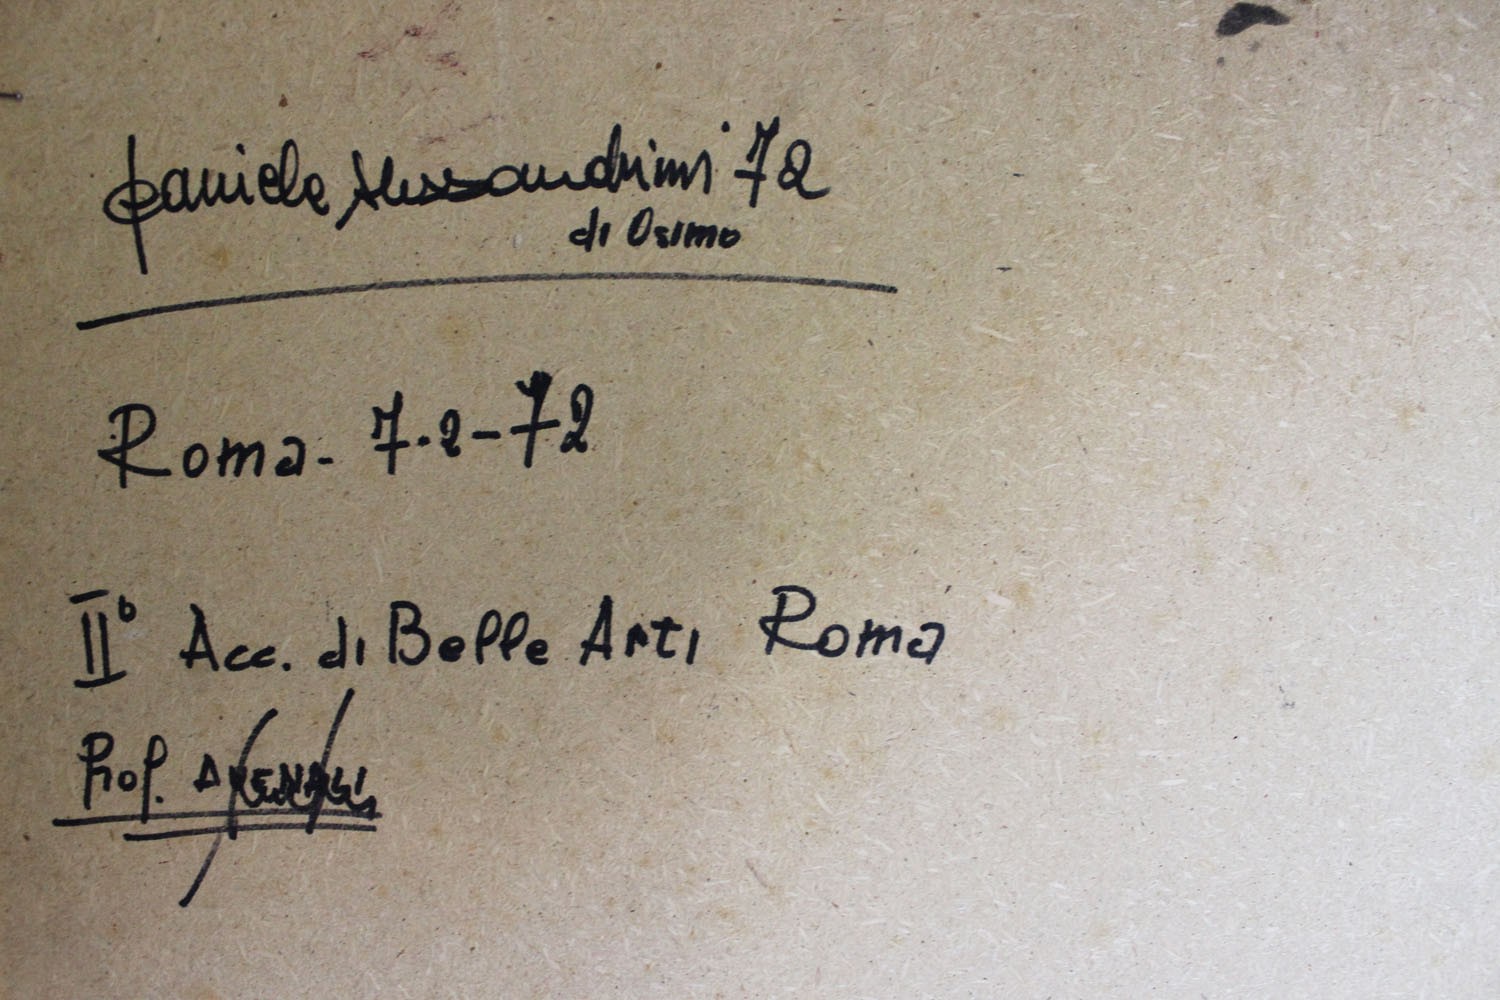 Daniele Alessandrini 72
di Osimo
Roma - 7·2-72
IIº Acc. di Belle Arti Roma
Prof. AVENALI